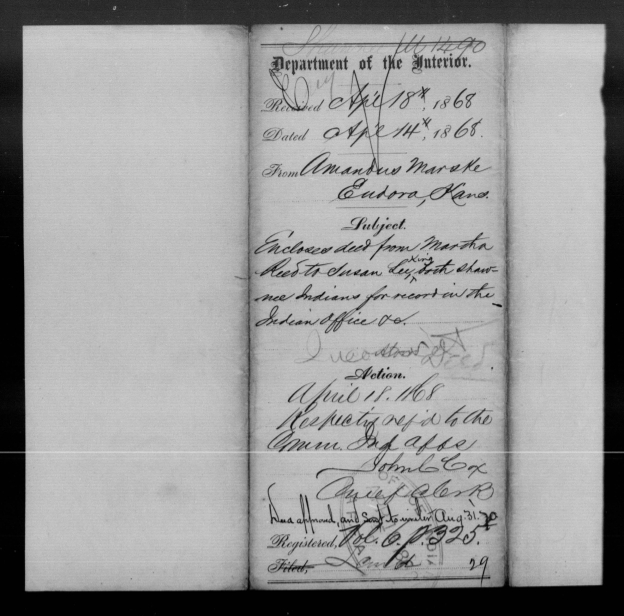 Shawnee M 1490
Department of the Interior.
Received Apl 18th, 1868
Dated Apl 14th, 1868.
From Amandus Marske
Eudora, Kans.
Subject.
Encloses deed from Martha
Reed to Susan Lexing, both Shaw-
nee Indians for record in the
Indian Office &c.
Deed
Action.
April 18. 1868
Respectfy ref'd to the
Comm. Ind affs
John C Cox
Chief Clerk
Deed approved, and sent to writer Aug. 31. 70
Registered, Vol. 6, p. 325.
Filed,
29